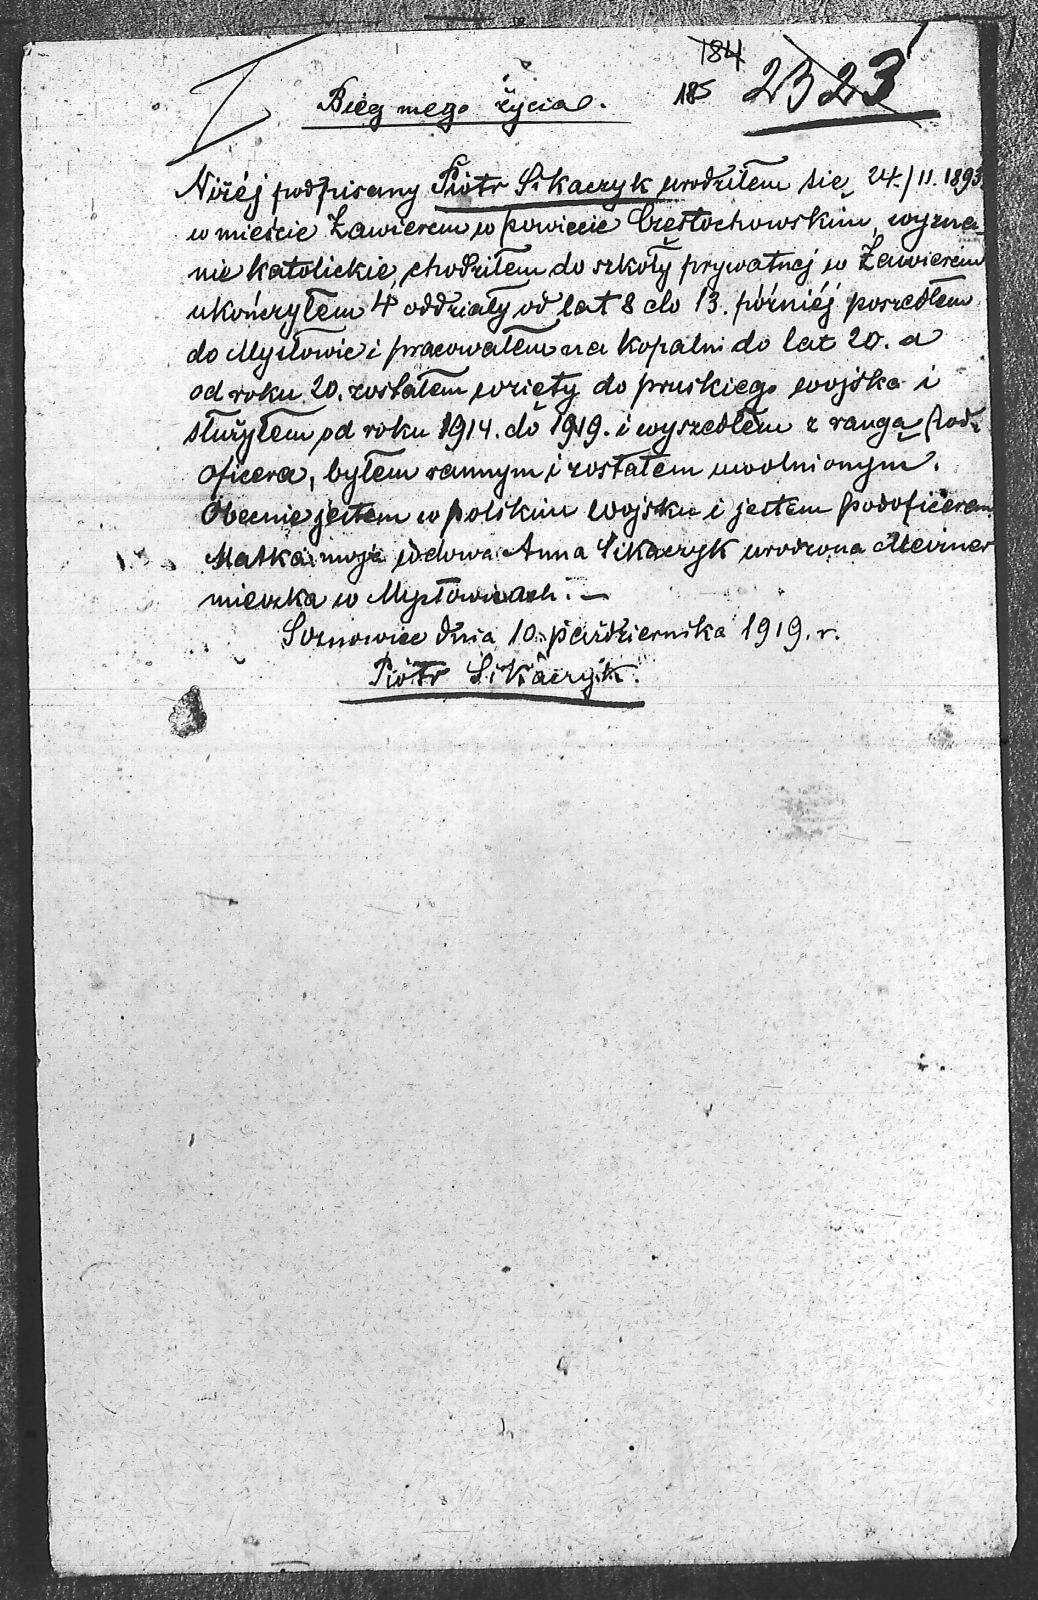 184
185 2323
Bieg mego życia.
Niżéj podpisany Piotr Sikaczyk urodziłem sie, 24./11. 1893
w mieście Zawierciu w powiecie Częstochowskim, wyzna-
nie katolickie, chodziłem do szkoły prywatnéj w Zawierciu
ukończyłem 4 oddziały od lat 8 do 13. późniéj poszedłem
do Mysłowic i pracowałem na kopalni do lat 20. a
od roku 20. zostałem wzięty do pruskiego wojska i
służyłem od roku 1914. do 1919. i wyszedłem z rangą Pod-
oficera, byłem rannym i zostałem uwolnionym.
Obecnie jestem w polskim wojsku i jestem podoficerem
Matka moja wdowa Anna Sikaczyk urodzona
mieszka w Mysłowicach. –
Sosnowiec dnia 10. października 1919. r.
Piotr Sikaczyk.